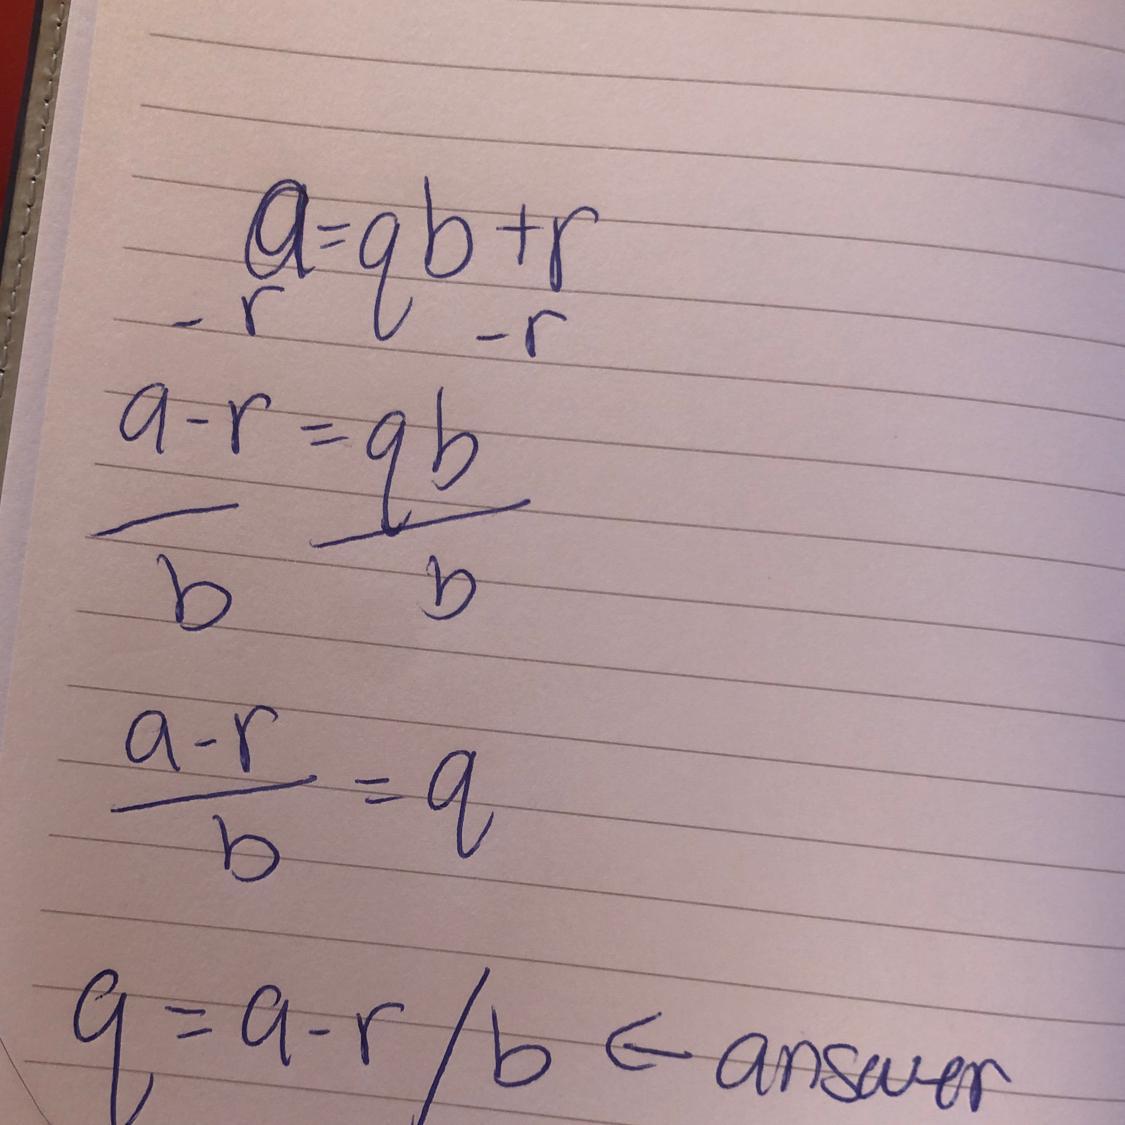 a=qb+r
-r -r
a-r=qb
b b
a-r
b
=q
q=a-r/b ← answer